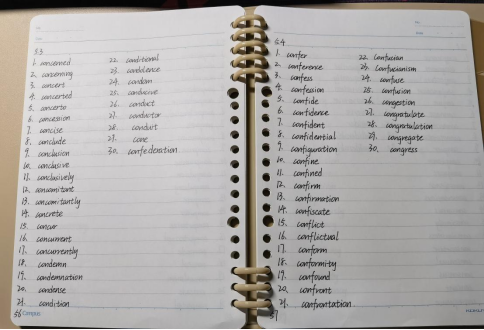 53
1. concerned
2. concerning
3. concert
4. concerted
5. concerto
6. concession
7. concise
8. conclude
9. conclusion
10. conclusive
11. conclusively
12. concomitant
13. concomitantly
14. concrete
15. concur
16. concurrent
17. concurrently
18. condemn
19. condemnation
20. condense
21. condition
22. conditional
23. condolence
24. condom
25. conducive
26. conduct
27. conductor
28. conduit
29. cone
30. confederation
56 Campus
54
1. confer
2. conference
3. confess
4. confession
5. confide
6. confidence
7. confident
8. confidential
9. configuration
10. confine
11. confined
12. confirm
13. confirmation
14. confiscate
15. conflict
16. conflictual
17. conform
18. conformity
19. confound
20. confront
21. confrontation
22. Confucian
23. Confucianism
24. confuse
25. confusion
26. congestion
27. congratulate
28. congratulation
29. congregate
30. congress
57